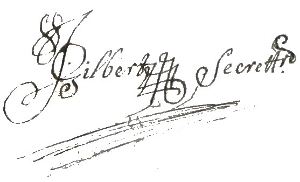 Gilbert Secrett.ro